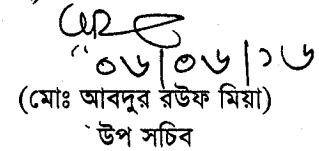 ০৬/০৬/১৬
(মোঃ আবদুর রউফ মিয়া)
উপ সচিব